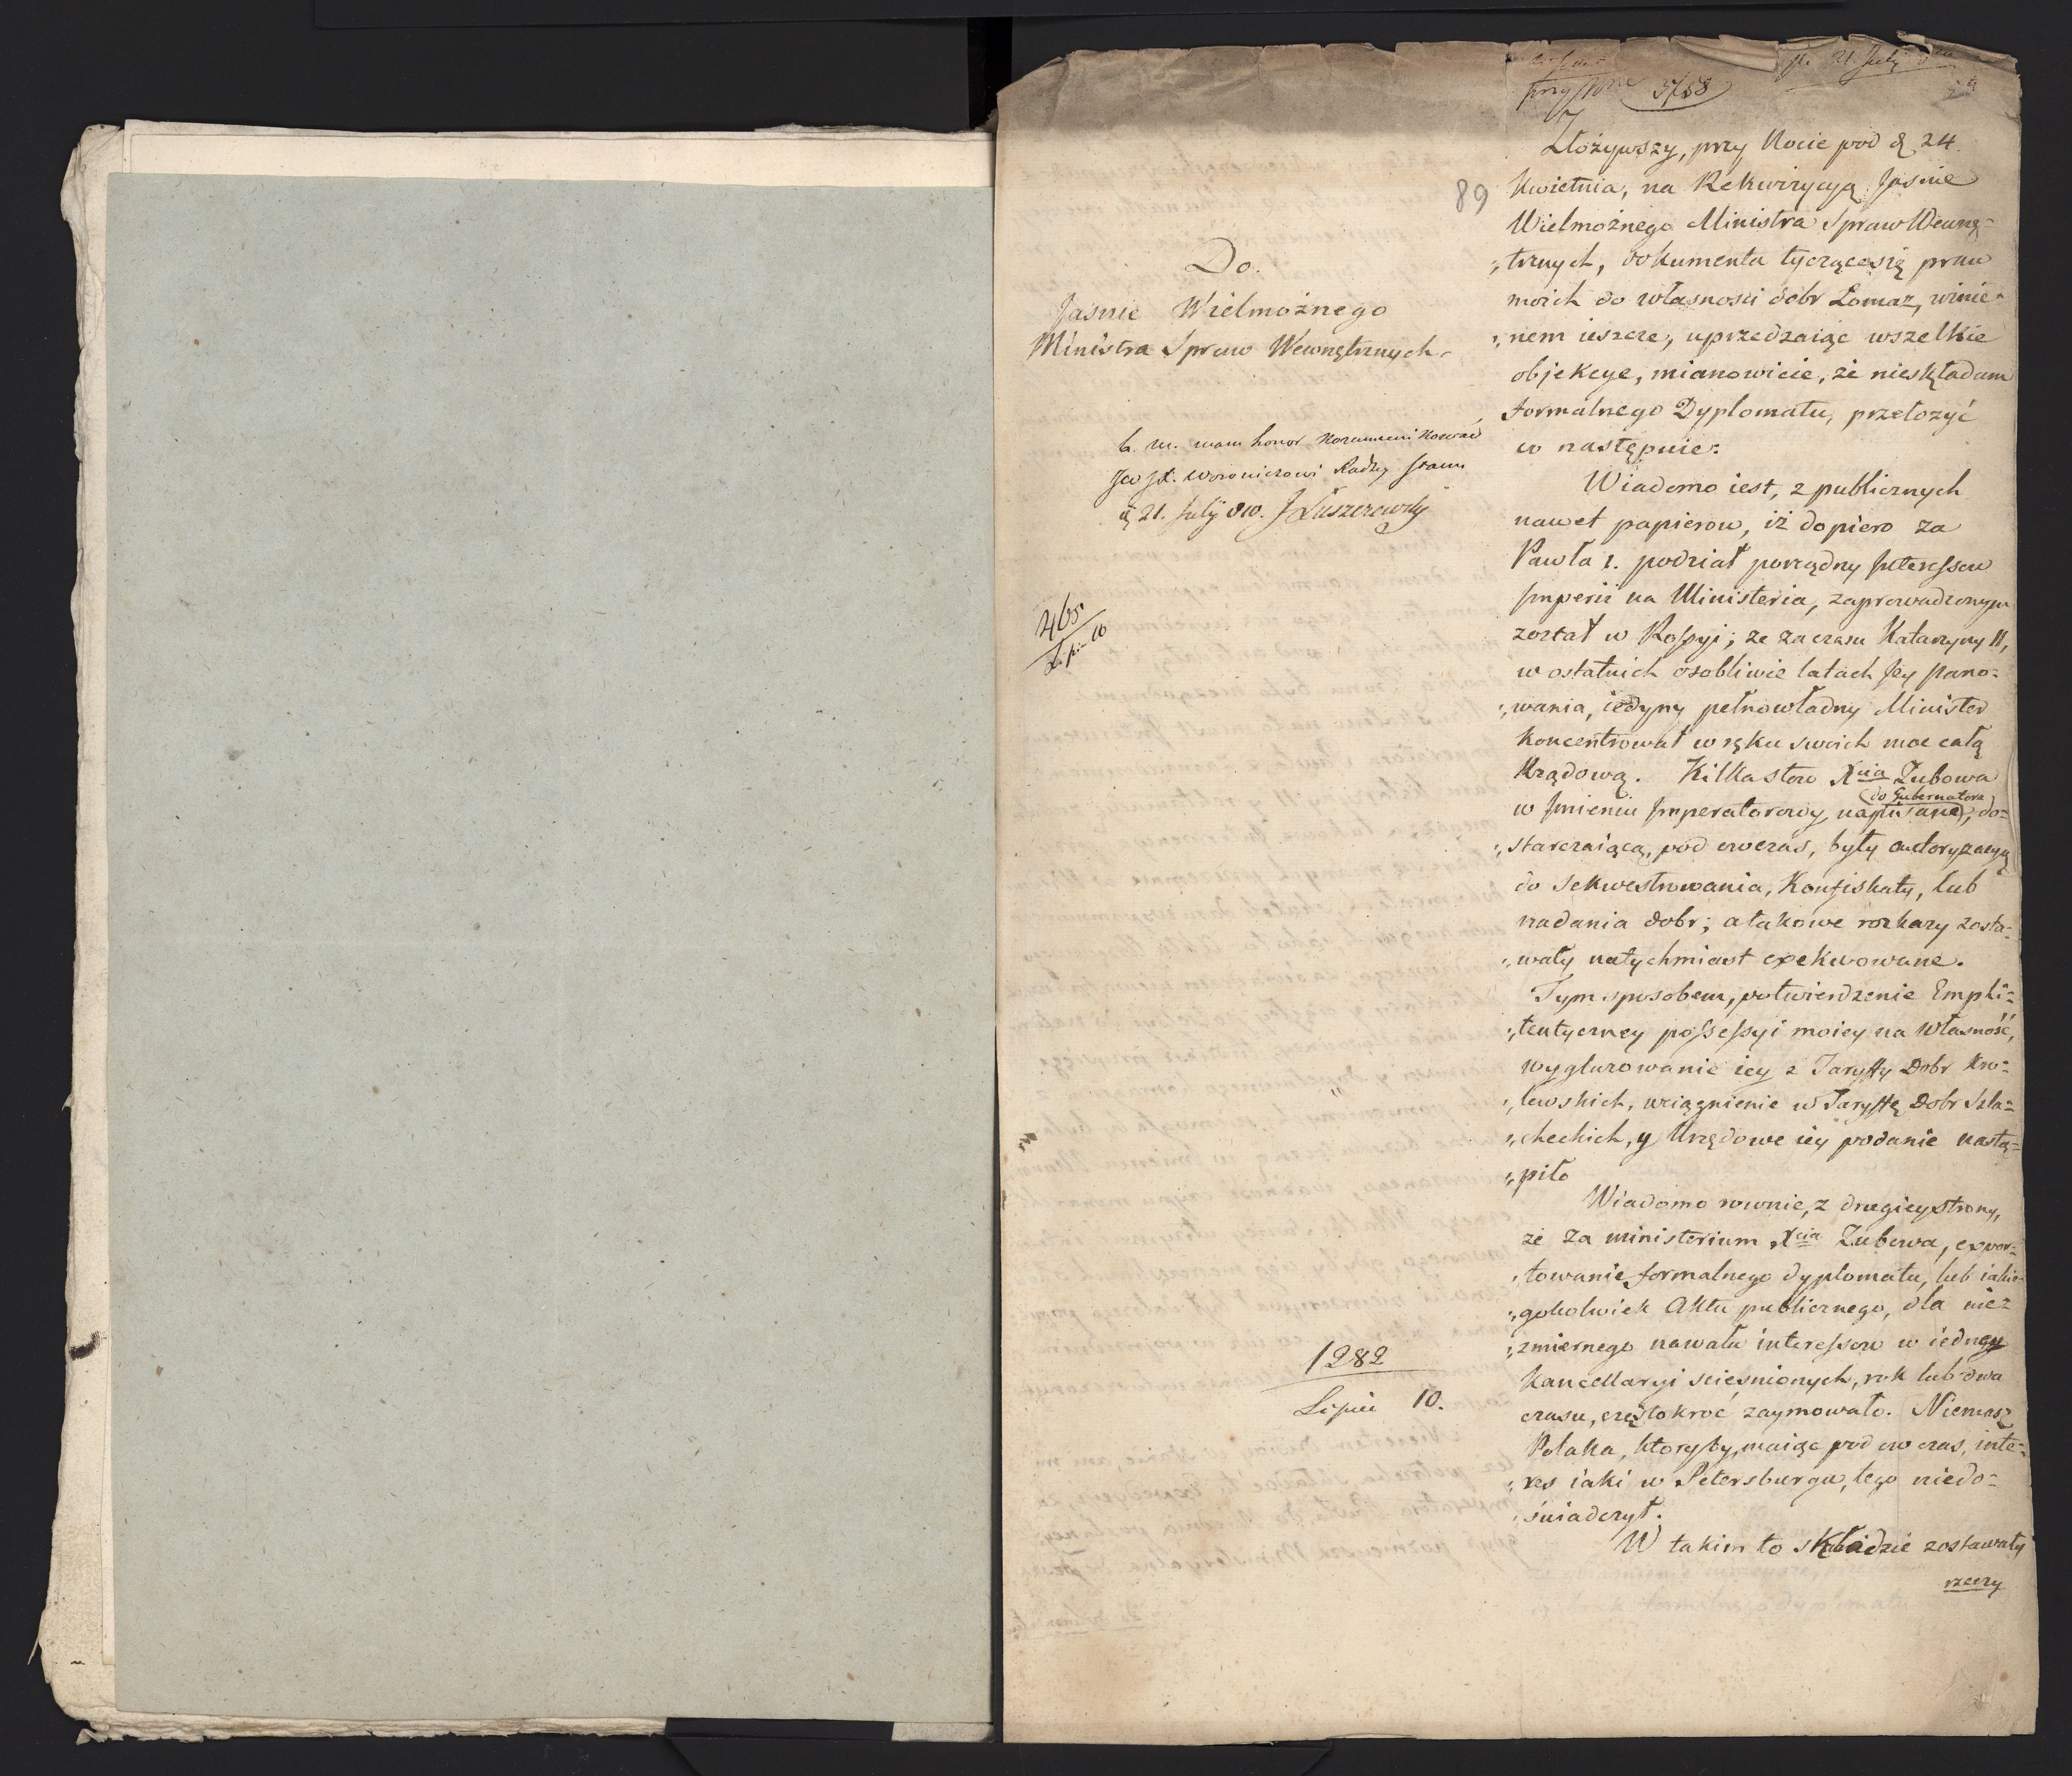 5758
89
Do.
Jasnie Wielmożnego
Ministra Spraw Wewnętrznych.
b. m. mam honor Kommunikować
JW Woroniczowi Radzcy Stanu
d. 21. July 810. J Łuszczewski
465
Lipca 10
1282
Lipca 10.
Złożywszy, przy Nocie pod d. 24
Kwietnia, na Rekwizycyą Jasnie
Wielmożnego Ministra Spraw Wewnę=
„trznych, dokumenta tyczącesię praw
moich do własnosci dobr Łomaz, winie=
„nem ieszcze, uprzedzaiąc wszelkie
objekcye, mianowicie, że nieskładam
formalnego Dyplomatu, przełożyć
co następuie:
Wiadomo iest, z publicznych
nawet papierow, iż dopiero za
Pawła 1. podział porządny Interessow
Imperii na Ministeria, zaprowadzonym
został w Rossyi; że za czasu Katarzyny II,
w ostatnich osobliwie latach Jey pano=
„wania, iedyny pełnowładny Minister
Koncentrował w ręku swoich moc całą
Rządową. Kilka słow Xcia Zubowa
w Imieniu Imperatorowy, (do Gubernatora) napisane, do=
„starczaiącą, pod owczas, były autoryzacyą
do sekwestrowania, Konfiskaty, lub
nadania dobr; a takowe rozkazy zosta=
„wały natychmiast exekwowane.
Tym sposobem, potwierdzenie Emphi=
„teutyczney possessyi moiey na własność,
wyglazowanie iey z Taryffy Dobr Kro=
„lewskich, wciągnienie w Taryffę Dobr Szla=
„checkich, y Urzędowe iey podanie nastą=
„piło
Wiadomo rownie, z drugiey strony,
że za ministerium Xcia Zubowa, expor=
„towanie formalnego dyplomatu, lub iakie=
„gokolwiek Aktu publicznego, dla nie=
„zmiernego nawału interessow w iedney
Kancellaryi scieśnionych, rok lub dwa
czasu, częstokroć zaymowało. Niemasz
Polaka, ktoryby, maiąc pod ow czas, inte=
„res iaki w Petersburgu, tego niedo=
„świadczył.
W takim to składzie zostawały
rzeczy